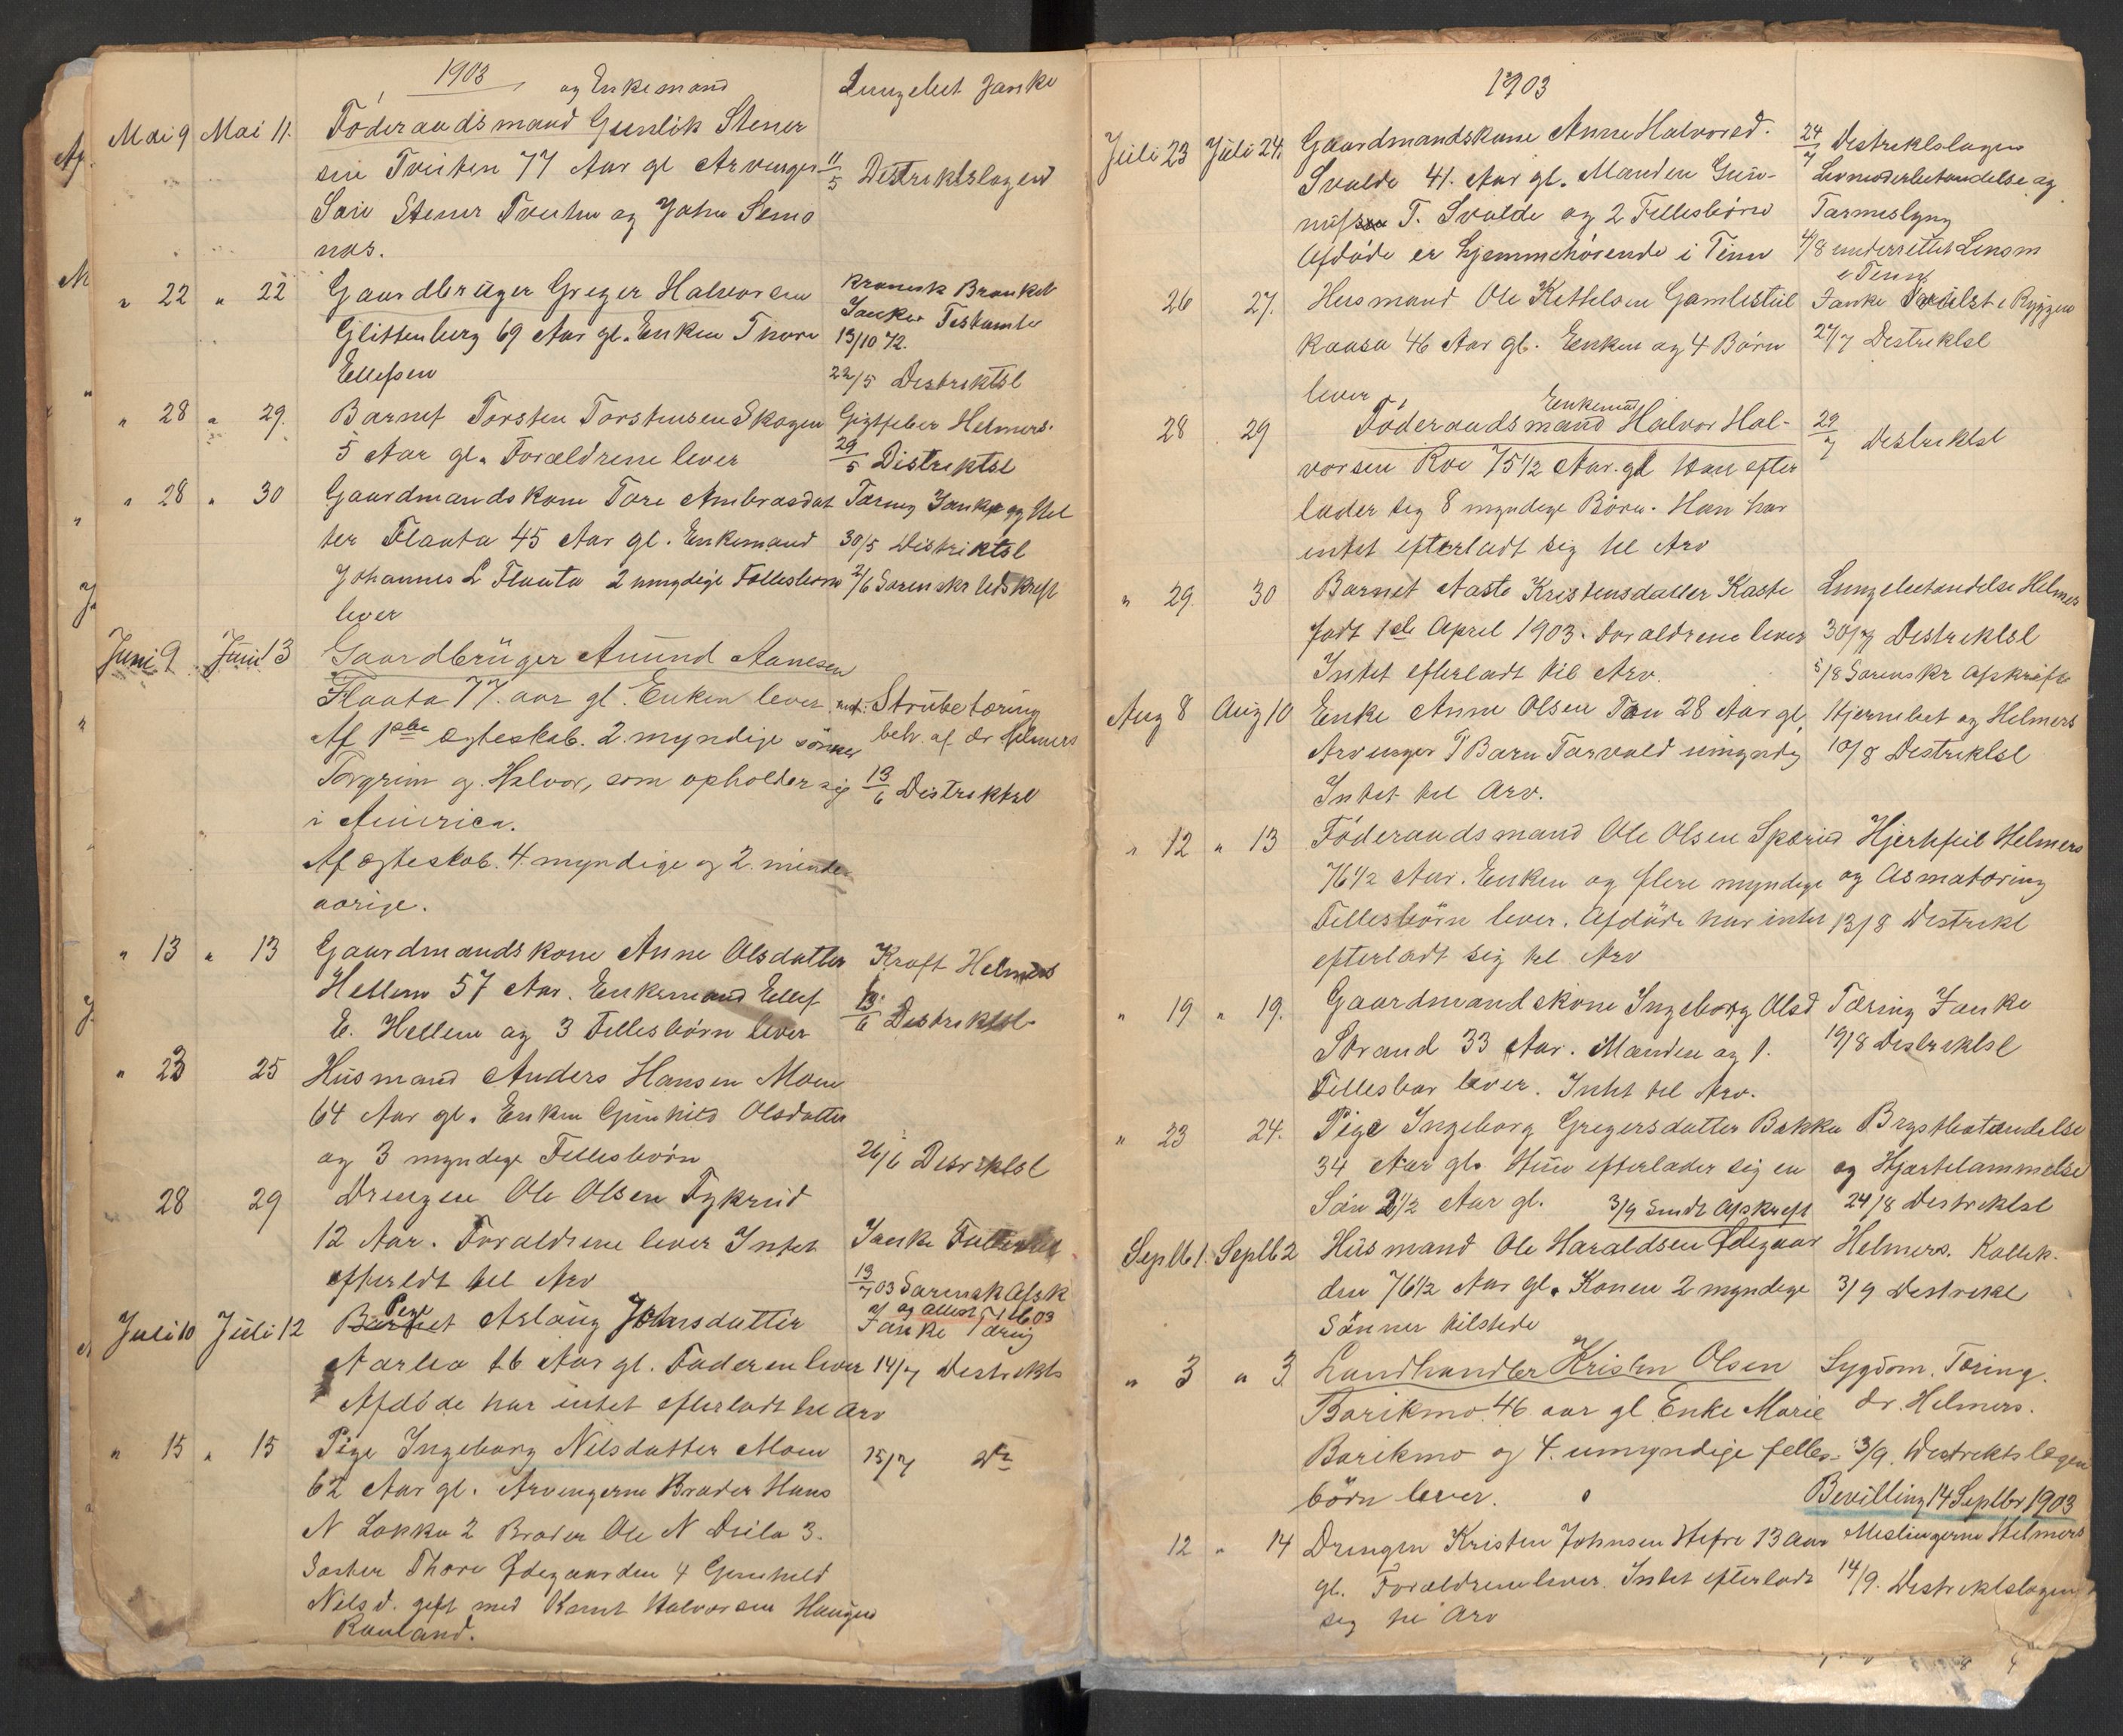 1903
og Enkemand
Lungebet Janke
Mai 9 Mai 11. Föderaadsmand Gunlik Stener
sen Tveiten 77 Aar gl Arvinger 11/5 Distriktslagen
Stener Tveiten og John Semo
nas.
" 22 " 22 Gaardbrüger Greger Halvorsen Kronisk Bronkit
Janke Testamte
Glittenberg 69 Aar gl. Enken Thore 13/10 72.
Ellefsen 22/5 Destriktsl
" 28 " 29. Barnet Torsten Torstensen Skogen Gigtfeber Helmers.
5 Aar gl. Forældrene lever 29/5 Distriktsl
" 28 " 30 Gaardmandskone Tore Ambrosdat Tæring Janke og Hel
ter Flaata 45 Aar gl. Enkemand 30/5 Distriktsl
Johannes L Flaata 2 myndige Fellesbörn 2/6 Sorenskr Udskrift
lever
Juni 9 Juni 13 Gaardbrüger Amund Aanesen
Flaata 77. aar gl. Enken lever. Strubetæring
Af 1ste ægteskab. 2. myndige sönner beh. af dr Helmers
Torgrim og Halvor, som opholder sig 13/6 Distriktsl
i America.
Af ægteskab. 4. myndige og 2. minder
aarige.
" 13 " 13 Gaardmandskone Anne Olsdatter Kræft Helmers
Hellem 57 Aar. Enkemand Ellef 13/6 Destriktsl
E. Hellem og 3 Fellesbörn lever
" 23 25 Husmand Anders Hansen Moen
64 Aar gl. Enken Gunhild Olsdatter
og 3 myndige Fellesbörn 26/6 Destriktsl
28 29 Drengen Ole Olsen Tykrud
12 Aar. Forældrene lever Intet Janke
efterladt til Arv 13/7 03 Sorensk Afsk
Juli 10 Juli 12 Barnet Pige Aslaug Johnsdatter Janke Tæring
16 Aar gl. Faderen lever 14/7 Destrikts
Afdöde har intet efterladt til Arv
" 15 " 15 Pige Ingeborg Nilsdatter Moen 15/7 Do
62 Aar gl. Arvingerne Broder Hans
N Lokka 2 Broder Ole N Deila 3.
Søster Thore Ødegaarden 4 Gunhild
Nilsd. gift med Knut Halvorsen Haugen
Rauland.
1903
Juli 23 Juli 24. Gaardmandskone Anne Halvorsd. 24/7 Destriktslagen
Svalde 41. Aar gl. Manden Gun- Livmoderbetændelse og
nuf T. Svalde og 2 Fellesbörn Tarmeslyng
Afdöde er hjemmehörende i Tinn 4/8 underrettet Lensm
i Tinn
26 27. Husmand Ole Kittelsen Gamlestul Janke Svulst i Ryggen
Kaasa 46 Aar gl. Enken og 4 Börn 27/7 Destriktsl
lever
Enkemd
28 29 Föderaadsmand Halvor Hal- 29/7 Destriktsl
vorsen Roe 75 1/2 Aar. gl Han efter
lader sig 8 myndige Börn. Han har
intet efterladt sig til Arv
" 29. 30 Barnet Aaste Kristensdatter Kaste Lungebetændelse Helmers
født 1ste April 1903. Foraldrene lever 30/7 Destriktsl
Intet efterladt til Arv. 5/8 Sorenskr Afskrift
Aug 8 Aug 10 Enke Anne Olsen Tøn 28 Aar gl Hjernebet og Helmers
Arvinger 1 Barn Torvald umyndig 10/8 Destriktsl
Intet til Arv.
" 12 " 13 Föderaadsmand Ole Olsen Sperud Hjertefeil Helmers
76 1/2 Aar. Enken og flere myndige og Asmatæring
Fellesbörn lever. Afdöde har intet 13/8 Destrikl
efterladt sig til Arv
" 19 " 19. Gaardmandskone Ingeborg Olsd Tæring Janke
Strand 33 Aar. Manden og 1. 19/8 Destriktsl
Fellesbar lever. Intet til Arv.
" 23 24. Pige Ingeborg Gregersdatter Bakka Brystbetændelse
34 Aar gl. Hun efterlader sig en og Hjertelammelse
Sön 2 1/2 Aar gl. 3/9 Sendt Afskrift 24/8 Destriktsl
Septb 1. Septb 2 Husmand Ole Haraldsen Ødegaar Helmers.
den 76 1/2 Aar gl. Konen 2 myndige 3/9 Destriktl
Sönner tilstede
" 3 " 3 Landhandler Kristen Olsen Sygdom. Tæring.
Barikmo. 46 aar gl Enke Marie dr. Helmers.
Barikmo og 4. umyndige felles- 3/9. Destriktslægen
börn lever. Bevilling 14 Septbr 1903
12 " 14 Drengen Kristen Johnsen Hefre 13 Aar Meslingerne Helmers
gl. Forældrene lever. Intet efterladt 14/9. Destriktslagen
sig til Arv